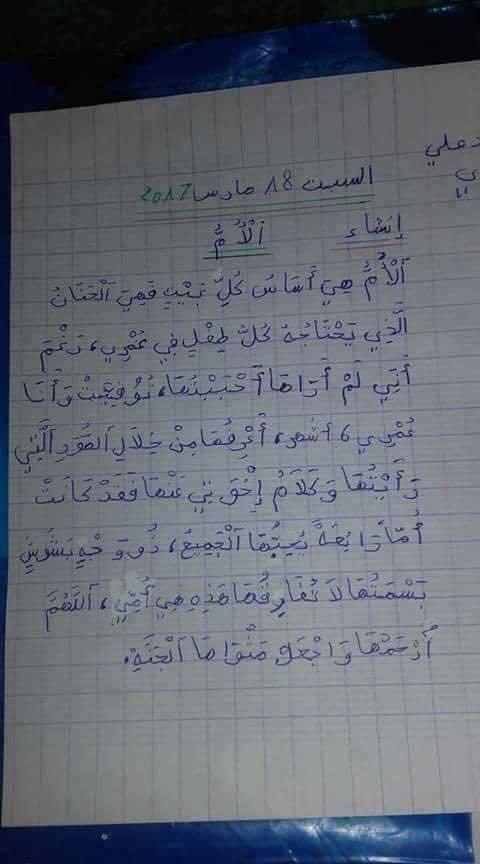 دعلي
ي
السبت 18 مارس 2017
إنشاء اَلْأُمُّ
اَلْأُمُّ هِيَ أَسَاسُ كُلِّ بَيْتٍ فَهِيَ اَلْحَنَانُ
اَلَّذِي يَحْتَاجُهُ كُلُّ طِفْلٍ فِي عُمْرِي، رَغْمَ
أَنِّي لَمْ أَرَاهَا أَحْبَبْتُهَا، تُوُفِيَّتْ وَأَنَا
عُمْرِي 6 أشهر، أَعْرِفُهَا مِنْ خِلَالِ اَلصُّوَرِ اَلَّتِي
رَأَيْتُهَا وَكَلَامُ إِخْوَتِي عَنْهَا فَقَدْ كَانَتْ
أُمًّا رَائِعَةً يُحِبُّهَا اَلْجَمِيعُ، ذُو وَجْهٍ بَشُوشٍ
بَسْمَتُهَا لَا تُفَارِقُهَا هَذِهِ هِيَ أُمِّي، اَللَّهُمَّ
اُرْحَمْهَا وَاجْعَلْ مَثْوَاهَا اَلْجَنَّةِ.